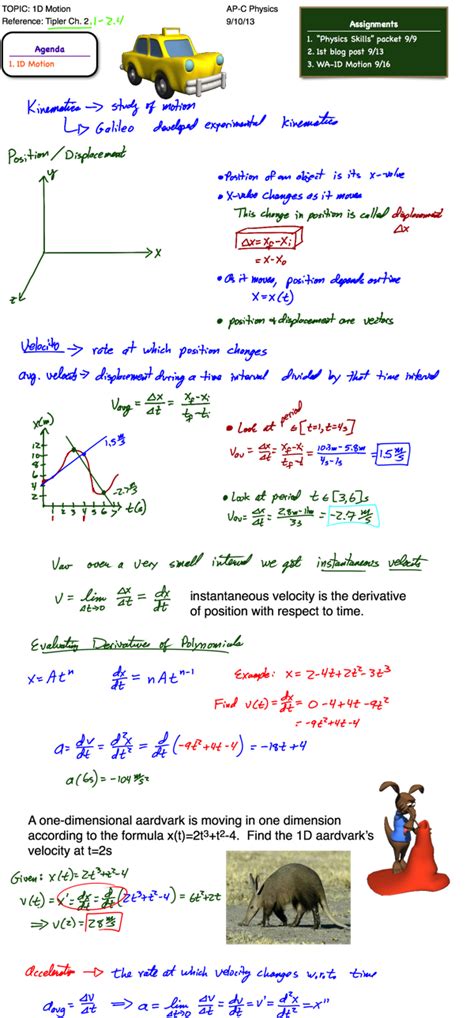 TOPIC: 1D Motion
AP-C Physics
Reference: Tipler Ch. 2.1-2.4
9/10/13
Agenda
1. 1D Motion
Assignments
1. "Physics Skills" packet 9/9
2. 1st blog post 9/13
3. WA-ID Motion 9/16
Kinematics → study of motion
↳ Galileo developed experimental kinematics
Position / Displacement
y
x
z
• Position of an object is its x-value
• X-value changes as it moves
This change in position is called displacement
Δx
Δx = xf - xi
= x - x₀
• As it moves, position depends on time
X = x(t)
• position & displacement are vectors
Velocity → rate at which position changes
avg. velocity → displacement during a time interval divided by that time interval
Vavg = Δx/Δt = (xf - xi)/(tf - ti)
x(m)
12
10
8
6
4
2
1.5 m/s
-2.7 m/s
1 2 3 4 5 6 7
t(s)
• Look at period t ∈ [t=1, t=4s]
Vav = Δx/Δt = (xf - xi)/(tf - ti) = (10.3m - 5.8m)/(4s - 1s) = 1.5 m/s
• Look at period t ∈ [3,6]s
Vav = Δx/Δt = (2.8m - 11m)/3s = -2.7 m/s
Vav over a very small interval we get instantaneous velocity
V = lim Δt→0 Δx/Δt = dx/dt
instantaneous velocity is the derivative
of position with respect to time.
Evaluating Derivatives of Polynomials
x = Atⁿ
dx/dt = nAtⁿ⁻¹
Example: x = 2-4t+2t²-3t³
Find v(t) = dx/dt = 0-4+4t-9t²
= -9t²+4t-4
a = dv/dt = d²x/dt² = d/dt(-9t²+4t-4) = -18t+4
a(6s) = -104 m/s²
A one-dimensional aardvark is moving in one dimension
according to the formula x(t)=2t³+t²-4. Find the 1D aardvark's
velocity at t=2s
Given: x(t) = 2t³+t²-4
v(t) = x' = dx/dt = d/dt(2t³+t²-4) = 6t²+2t
⇒ v(2) = 28 m/s
Acceleration → the rate at which velocity changes w.r.t. time
aavg = Δv/Δt ⇒ a = lim Δt→0 Δv/Δt = dv/dt = v' = d²x/dt² = x"